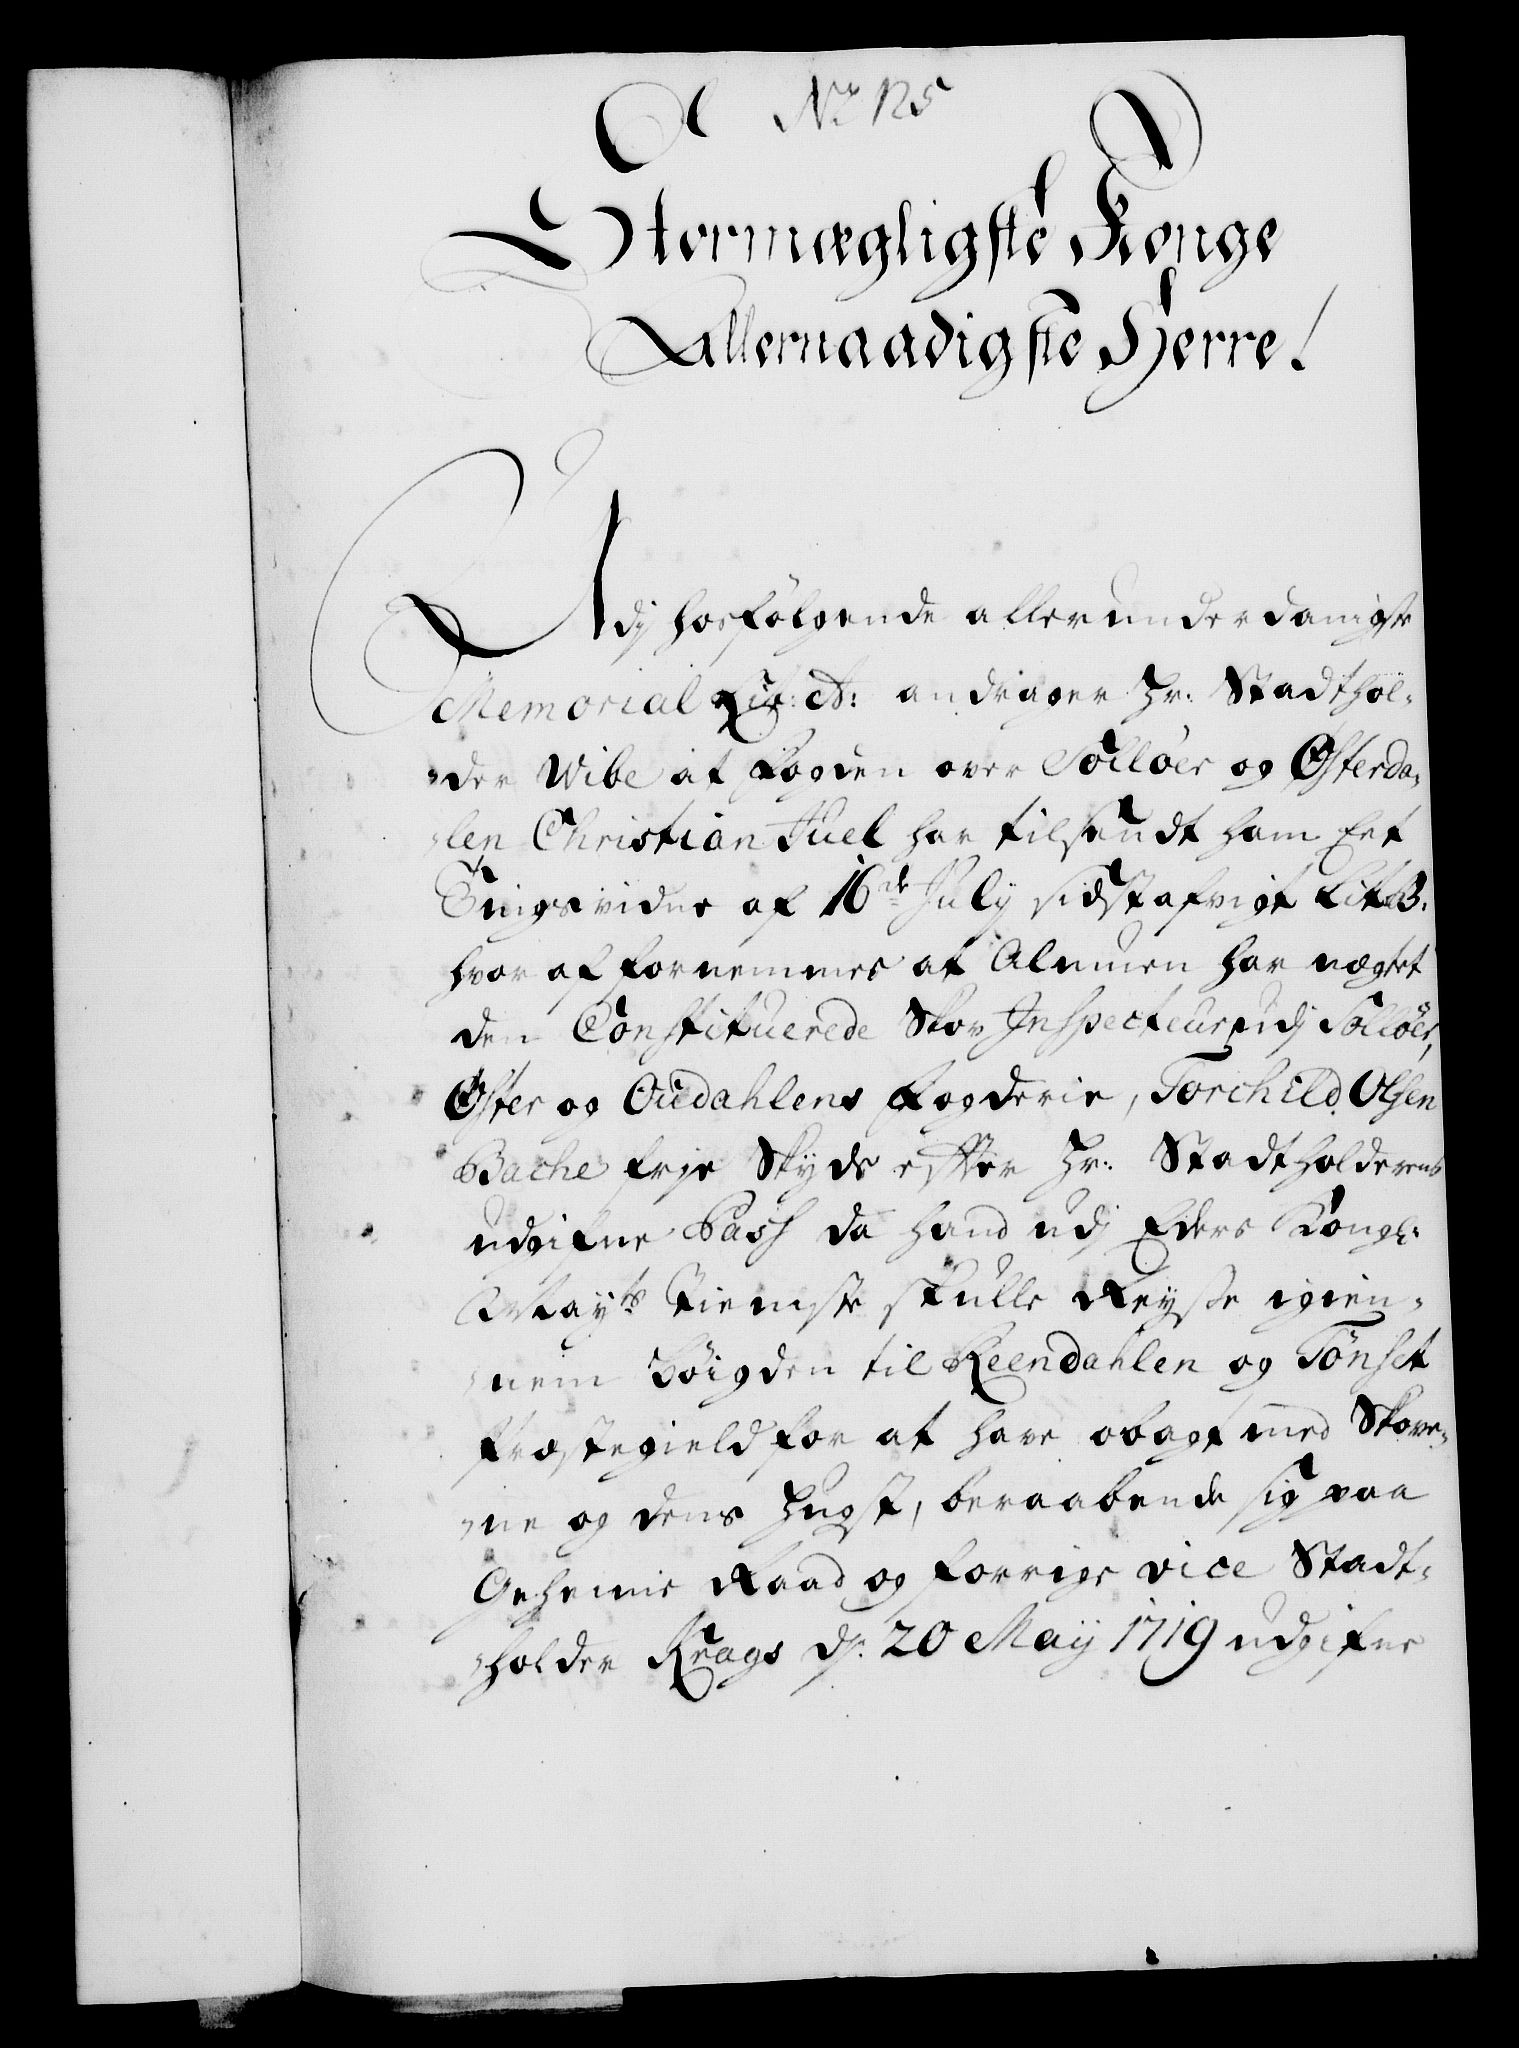 No: 125
Stormægligste Konge
Allernaadigste Herre!
Udj hosfølgende allerunderdanigste
Memorial Lit: A: andrager Hr: Stadthol-
der Wibe at Fogden over Solløer og Østerda-
len Christian Juel har tilsendt ham Eet
Tingsvidne af 16de July sidst afvigt Lit: B.
hvor af fornemmes at Almuen har nægtet
den Constituerede Skov Inspecteur udj Solløer,
Øster og Oudahlens Fogderie, Torchild Olsen
Bache frje Skyds efter Hr: Stadtholderens
udgifne Pass da hand udj Eders Kongl:
Mayts Tieniste skulle Reyse igien-
nem Bøigden til Reendahlen og Tønset
Præstegield for at have obagt med Skove-
ne og dens Hugst, beraabende sig paa
Geheime Raad og forrige vice Stadt-
holder Krags d: 20 May 1719 udgifne